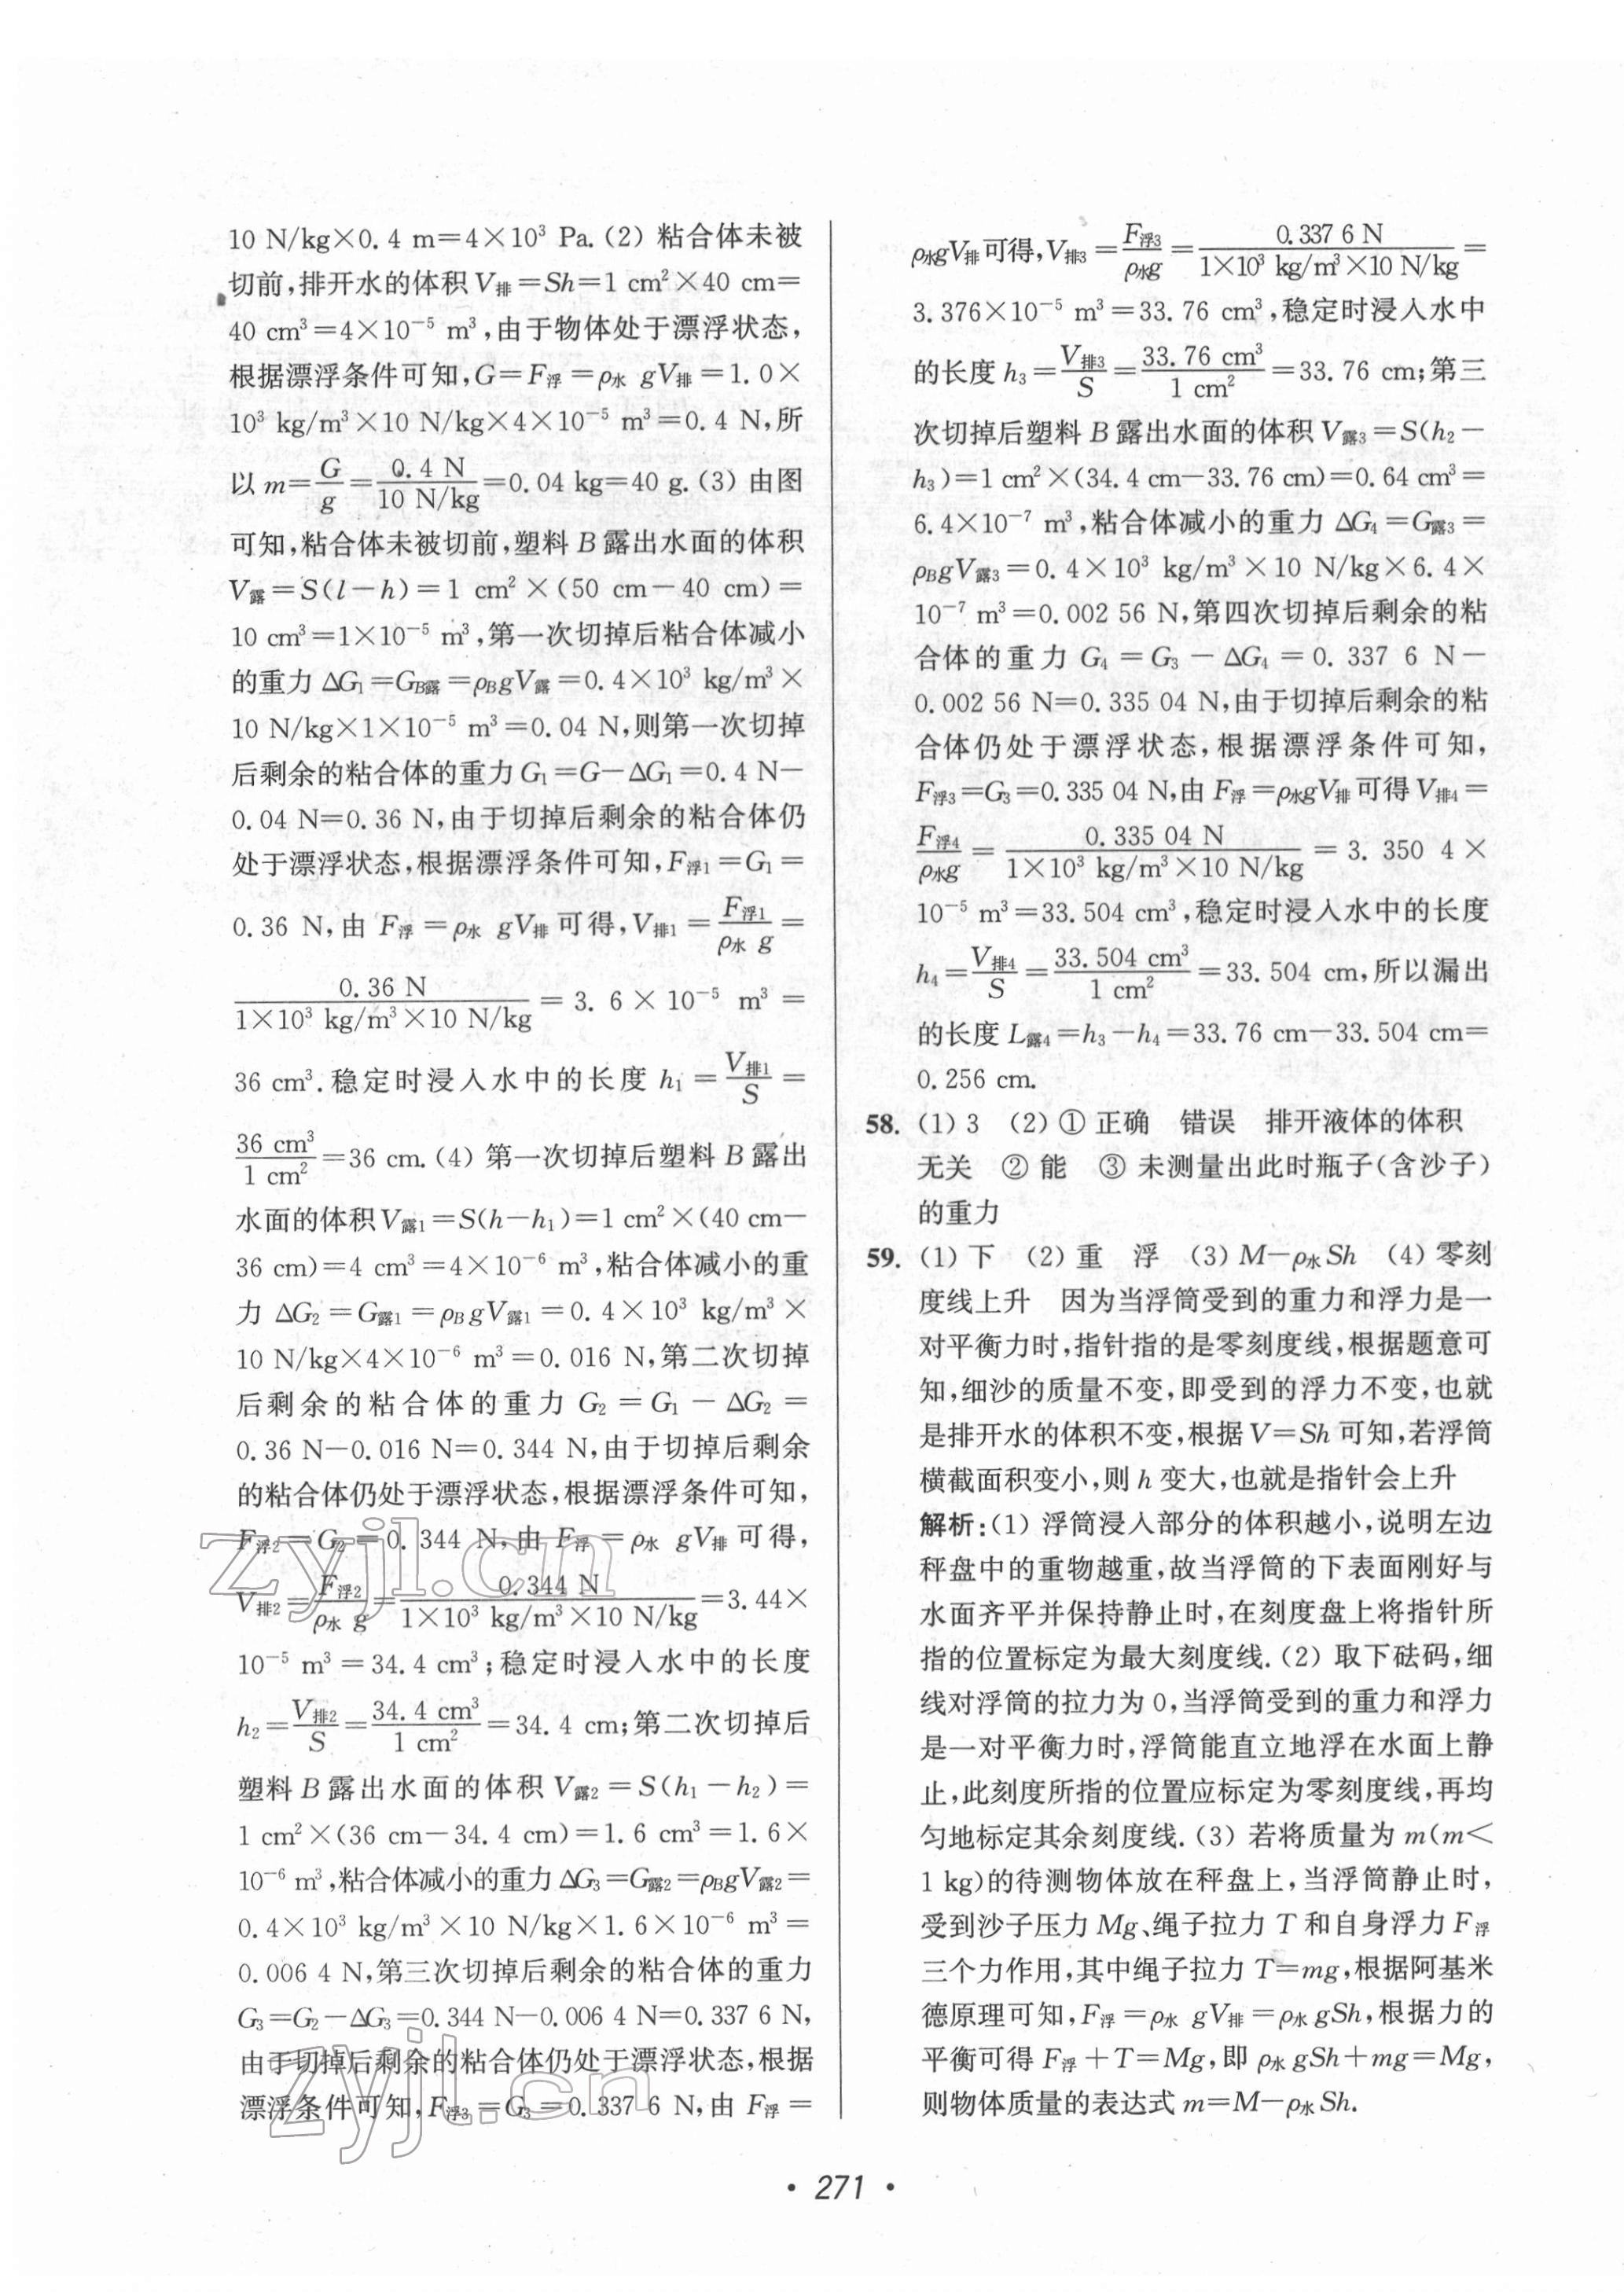 10 N/kg×0.4 m=4×10³ Pa.(2) 粘合体未被
切前,排开水的体积V排=Sh=1 cm²×40 cm=
40 cm³=4×10⁻⁵ m³,由于物体处于漂浮状态,
根据漂浮条件可知,G=F浮=ρ水 gV排=1.0×
10³ kg/m³×10 N/kg×4×10⁻⁵ m³=0.4 N,所
以 m=G/g=0.4 N/10 N/kg=0.04 kg=40 g.(3) 由图
可知,粘合体未被切前,塑料B露出水面的体积
V露=S(l-h)=1 cm²×(50 cm-40 cm)=
10 cm³=1×10⁻⁵ m³,第一次切掉后粘合体减小
的重力 ΔG₁=G_B露=ρ_B gV露=0.4×10³ kg/m³×
10 N/kg×1×10⁻⁵ m³=0.04 N,则第一次切掉
后剩余的粘合体的重力G₁=G-ΔG₁=0.4 N-
0.04 N=0.36 N,由于切掉后剩余的粘合体仍
处于漂浮状态,根据漂浮条件可知,F浮1=G₁=
0.36 N,由 F浮=ρ水 gV排可得,V排1=F浮1/ρ水 g=
0.36 N/1×10³ kg/m³×10 N/kg=3.6×10⁻⁵ m³=
36 cm³.稳定时浸入水中的长度 h₁=V排1/S=
36 cm³/1 cm²=36 cm.(4) 第一次切掉后塑料B露出
水面的体积V露1=S(h-h₁)=1 cm²×(40 cm-
36 cm)=4 cm³=4×10⁻⁶ m³,粘合体减小的重
力 ΔG₂=G露1=ρ_B gV露1=0.4×10³ kg/m³×
10 N/kg×4×10⁻⁶ m³=0.016 N,第二次切掉
后剩余的粘合体的重力 G₂=G₁-ΔG₂=
0.36 N-0.016 N=0.344 N,由于切掉后剩余
的粘合体仍处于漂浮状态,根据漂浮条件可知,
F浮2=G₂=0.344 N,由 F浮=ρ水 gV排可得,
V排2=F浮2/ρ水 g=0.344 N/1×10³ kg/m³×10 N/kg=3.44×
10⁻⁵ m³=34.4 cm³;稳定时浸入水中的长度
h₂=V排2/S=34.4 cm³/1 cm²=34.4 cm;第二次切掉后
塑料B露出水面的体积V露2=S(h₁-h₂)=
1 cm²×(36 cm-34.4 cm)=1.6 cm³=1.6×
10⁻⁶ m³,粘合体减小的重力 ΔG₃=G露2=ρ_B gV露2=
0.4×10³ kg/m³×10 N/kg×1.6×10⁻⁶ m³=
0.006 4 N,第三次切掉后剩余的粘合体的重力
G₃=G₂-ΔG₃=0.344 N-0.006 4 N=0.337 6 N,
由于切掉后剩余的粘合体仍处于漂浮状态,根据
漂浮条件可知,F浮3=G₃=0.337 6 N,由 F浮=
ρ水gV排可得,V排3=F浮3/ρ水g=0.337 6 N/1×10³ kg/m³×10 N/kg=
3.376×10⁻⁵ m³=33.76 cm³,稳定时浸入水中
的长度 h₃=V排3/S=33.76 cm³/1 cm²=33.76 cm;第三
次切掉后塑料B露出水面的体积V露3=S(h₂-
h₃)=1 cm²×(34.4 cm-33.76 cm)=0.64 cm³=
6.4×10⁻⁷ m³,粘合体减小的重力 ΔG₄=G露3=
ρ_B gV露3=0.4×10³ kg/m³×10 N/kg×6.4×
10⁻⁷ m³=0.002 56 N,第四次切掉后剩余的粘
合体的重力 G₄=G₃-ΔG₄=0.337 6 N-
0.002 56 N=0.335 04 N,由于切掉后剩余的粘
合体仍处于漂浮状态,根据漂浮条件可知,
F浮3=G₃=0.335 04 N,由 F浮=ρ水gV排可得V排4=
F浮4/ρ水g=0.335 04 N/1×10³ kg/m³×10 N/kg=3.350 4×
10⁻⁵ m³=33.504 cm³,稳定时浸入水中的长度
h₄=V排4/S=33.504 cm³/1 cm²=33.504 cm,所以漏出
的长度 L露4=h₃-h₄=33.76 cm-33.504 cm=
0.256 cm.
58. (1) 3 (2) ① 正确 错误 排开液体的体积
无关 ② 能 ③ 未测量出此时瓶子(含沙子)
的重力
59. (1) 下 (2) 重 浮 (3) M-ρ水Sh (4) 零刻
度线上升 因为当浮筒受到的重力和浮力是一
对平衡力时,指针指的是零刻度线,根据题意可
知,细沙的质量不变,即受到的浮力不变,也就
是排开水的体积不变,根据V=Sh可知,若浮筒
横截面积变小,则 h 变大,也就是指针会上升
解析:(1) 浮筒浸入部分的体积越小,说明左边
秤盘中的重物越重,故当浮筒的下表面刚好与
水面齐平并保持静止时,在刻度盘上将指针所
指的位置标定为最大刻度线.(2) 取下砝码,细
线对浮筒的拉力为0,当浮筒受到的重力和浮力
是一对平衡力时,浮筒能直立地浮在水面上静
止,此刻度所指的位置应标定为零刻度线,再均
匀地标定其余刻度线.(3) 若将质量为m(m<
1 kg)的待测物体放在秤盘上,当浮筒静止时,
受到沙子压力 Mg、绳子拉力 T 和自身浮力F浮
三个力作用,其中绳子拉力 T=mg,根据阿基米
德原理可知,F浮=ρ水 gV排=ρ水 gSh,根据力的
平衡可得 F浮+T=Mg,即 ρ水 gSh+mg=Mg,
则物体质量的表达式 m=M-ρ水 Sh.
zyjl.cn
zyjl.cn
• 271 •